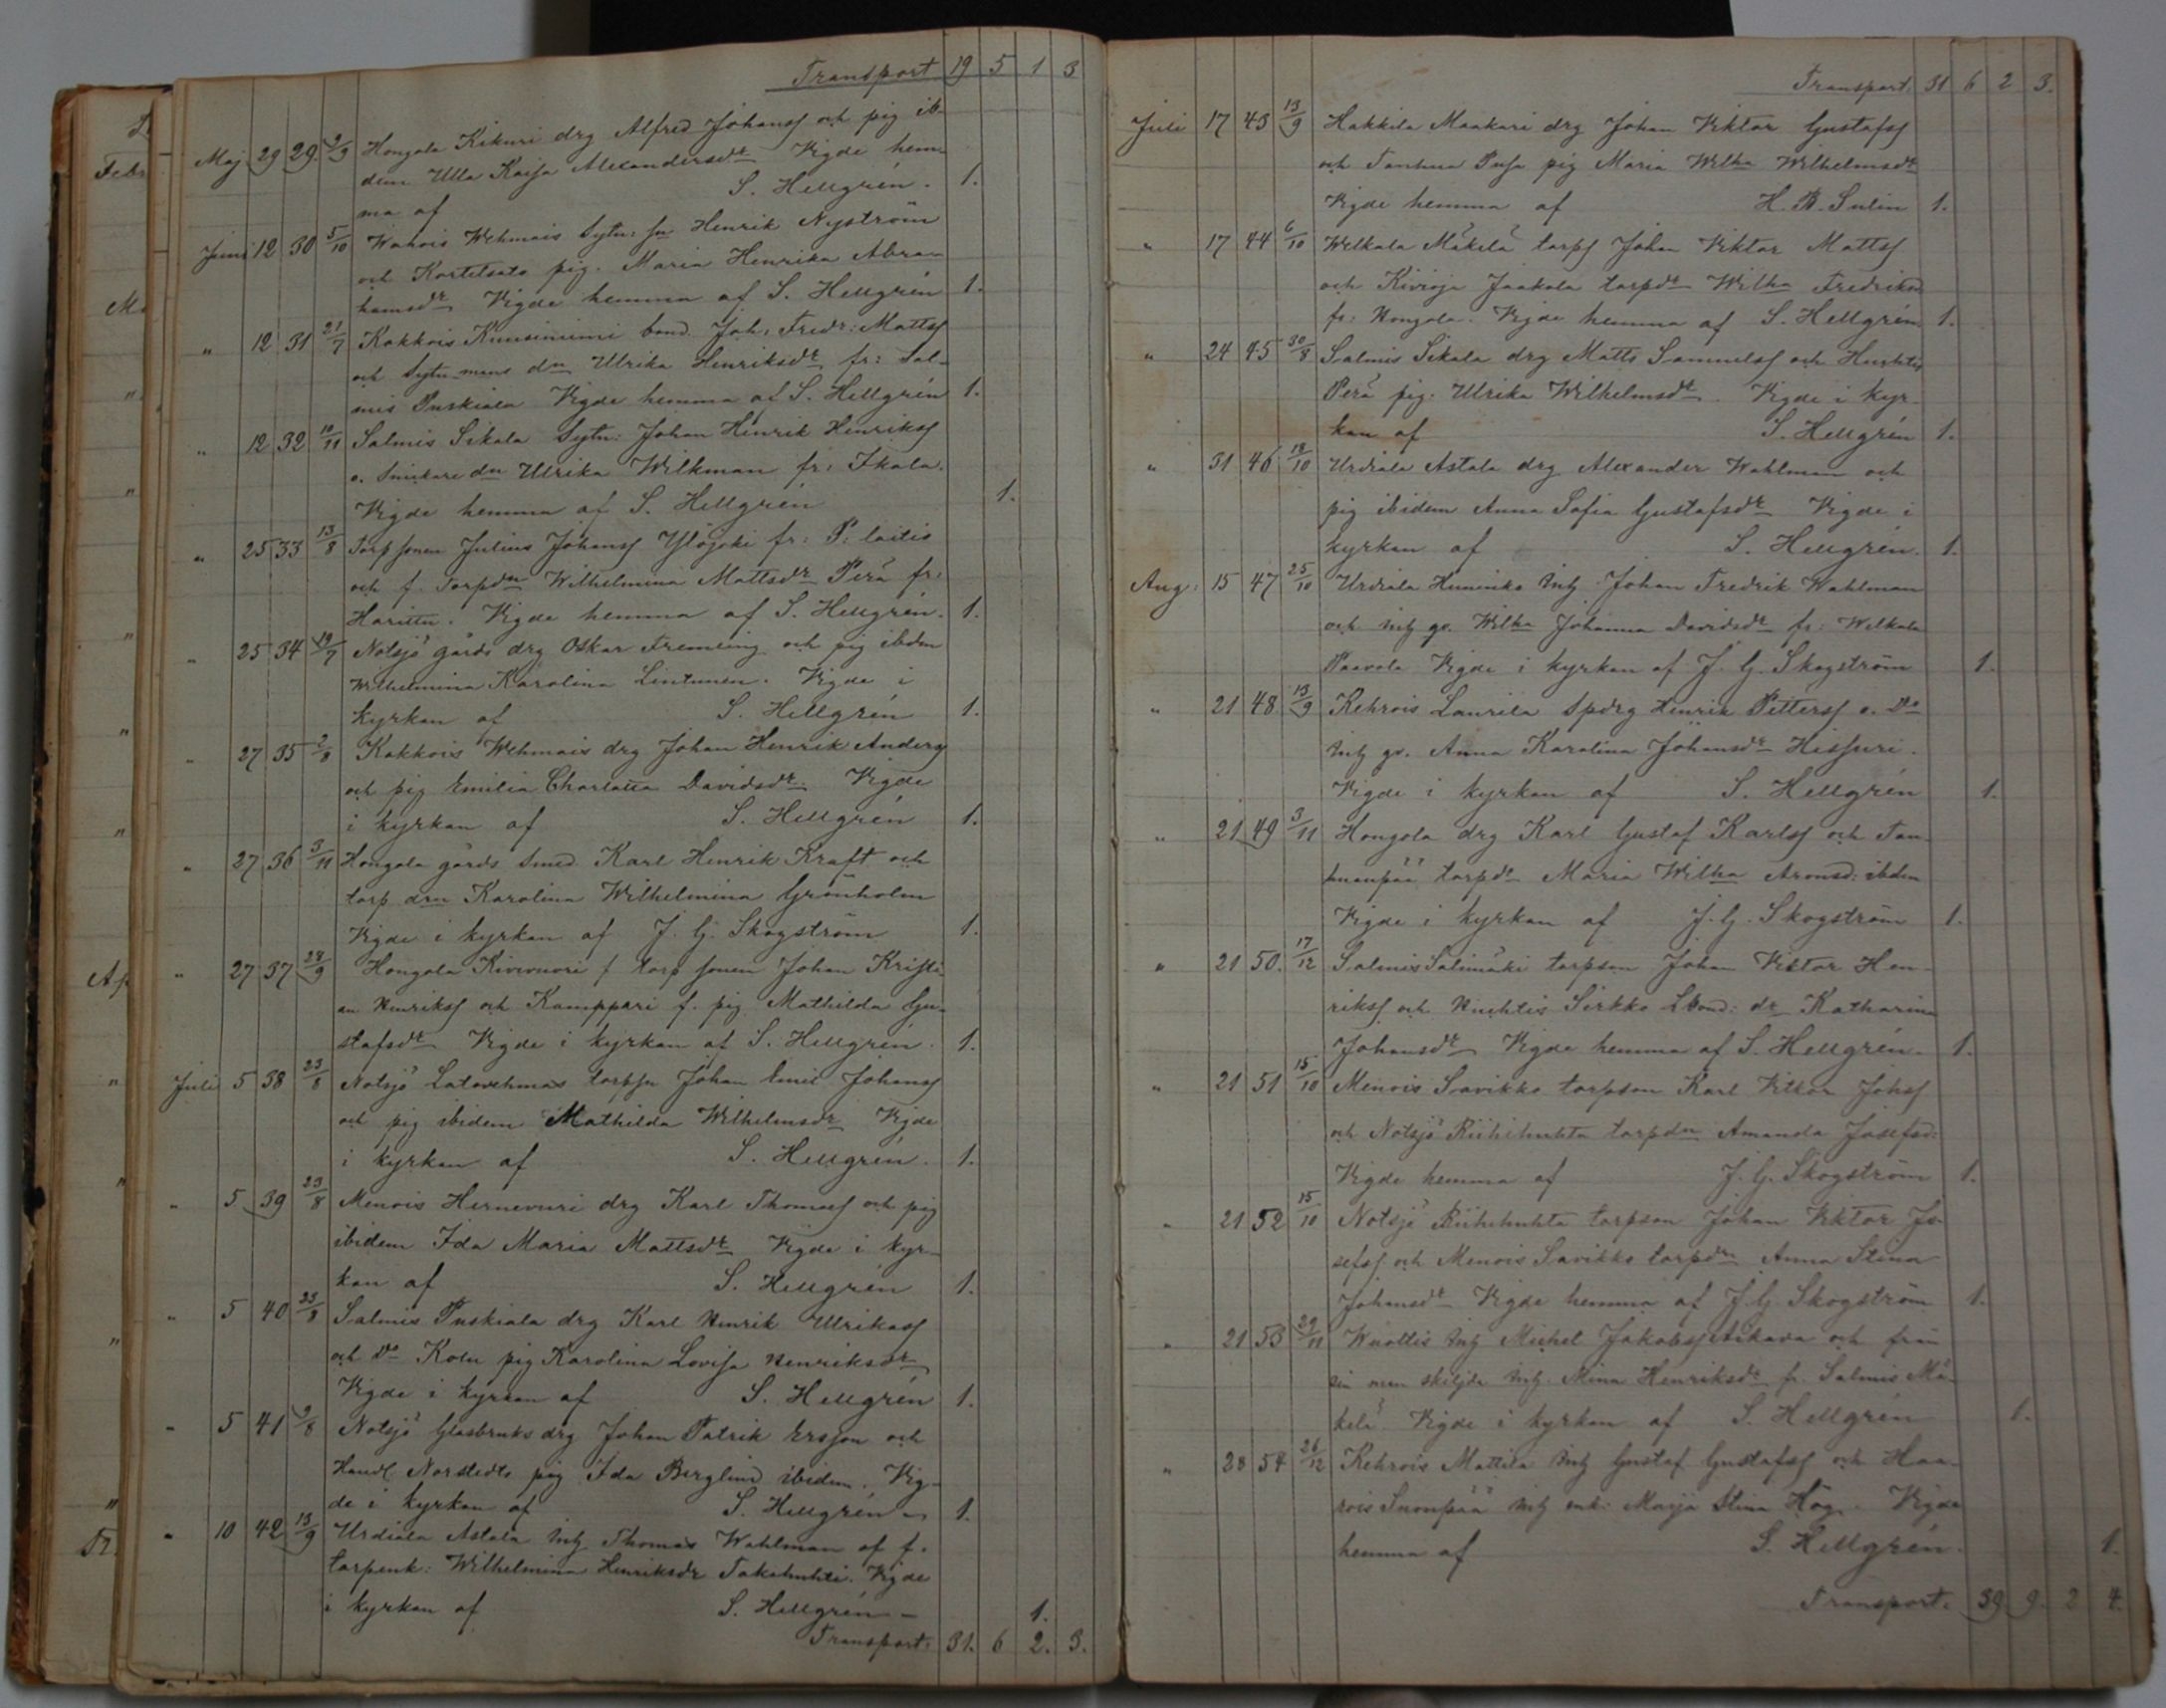 Transport 19 5 1 3
Maj 29 29. 9/9 Hongola Kikuri drg Alfred Johanss och pig ib-
dem Ulla Kaisa Alexandersdr Vigde hem-
ma af S. Hellgrén. 1.
Juni 12 30 5/10 Wahois Wehmais Sytn: sn Henrik Nyström
och Kortetsato pig. Maria Henrika Abra-
hamsdr Vigde hemma af S. Hellgrén 1.
" 12 31 21/7 Kokkois Kuusiniemi bond. Joh: Fredr: Mattss
och Sytn mans dn Ulrika Henriksdr fr: Sal-
mis Puskiala Vigde hemma af S. Hellgrén 1.
" 12 32 10/11 Salmis Sikala Sytn: Johan Henrik Henrikss
o. Snickare dn Ulrika Wilkman fr: Ikala.
Vigde hemma af S. Hellgrén 1.
" 25 33 13/8 Torp sonen Julius Johanss Ylöjoki fr: P: laitio
och f. Torpdn Wilhelmina Mattsdr Perä fr:
Harittu. Vigde hemma af S. Hellgrén. 1.
" 25 34 19/7 Notsjö gårds drg Oskar Fremling och pig ibdm
Wilhelmina Karolina Lintunen. Vigde i
kyrkan af S. Hellgrén 1.
" 27 35 2/8 Kokkois Wehmais drg Johan Henrik Anderss
och pig Emilia Charlotta Davidsdr. Vigde
i kyrkan af S. Hellgrén 1.
" 27 36 3/11 Hongola gårds Smed Karl Henrik Kraft och
torp drn Karolina Wilhelmina Grönholm
Vigde i kyrkan af J. G. Skogström 1.
" 27 37 28/9 Hongola Kivivuori f torp sonen Johan Kristi-
an Henrikss och Kamppari f. pig Mathilda Gu-
stafsdr Vigde i kyrkan af S. Hellgrén. 1.
Juli 5 38 23/8 Notsjö Latovehmas torpsn Johan Emil Johanss
och pig ibidem Mathilda Wilhelmsdr Vigde
i kyrkan af S. Hellgrén. 1.
" 5 39 23/8 Menois Hernevuri drg Karl Thomass och pig
ibidem Ida Maria Mattsdr Vigde i kyr-
kan af S. Hellgrén 1.
" 5 40 25/8 Salmis Puskiala drg Karl Henrik Ulrikass
och Do Kotu pig Karolina Lovisa Henriksdr
Vigde i kyrkan af S. Hellgrén 1.
" 5 41 9/8 Notsjö Glasbruks drg Johan Patrik Ersson och
Handl Norstedts pig Ida Berglind ibidem. Vig-
de i kyrkan af S. Hellgrén – 1.
" 10 42 13/9 Urdiala Astala Inh Thomas Wahlman of f.
torpenk: Wilhelmina Henriksdr Takahuhti. Vigde
i kyrkan af S. Hellgrén – 1.
Transport. 31. 6 2. 3.
Transport. 31 6 2 3.
Juli 17 43 13/9 Hakkila Maakari drg Johan Viktor Gustafss
och Tanhua pig Maria Wilha Wilhelmsdr
Vigde hemma af H. B. Sulin 1.
" 17 44 6/10 Welkala Mäkelä torps Johan Viktor Mattss
och Kivioja Jaakola torpdr Wilha Fredriksd
fr: Hongola. Vigde hemma af S. Hellgrén. 1.
" 24 45 30/8 Salmis Sikala drg Matts Samuelss och Huhtis
Perä pig. Ulrika Wilhelmsdr. Vigde i kyr-
kan af S. Hellgrén 1.
" 31 46 18/10 Urdiala Astala drg Alexander Wahlman och
pig ibidem Anna Sofia Gustafsdr Vigde i
kyrkan af S. Hellgrén. 1.
Aug: 15 47 25/10 Urdiala Huninko Inh Johan Fredrik Wahlman
och Inh go. Wilha Johanna Davidsdr fr: Welkala
Paavola Vigde i kyrkan af J. G. Skogström 1.
" 21 48 13/9 Kehrois Laurila Spdrg Henrik Petterss o. Do
Inh go. Anna Karolina Johansdr Hissuri.
Vigde i kyrkan af S. Hellgrén 1.
" 21 49 3/11 Hongola drg Karl Gustaf Karlss och Tan-
huanpää torpdr Maria Wilha Aronsd: ibdm
Vigde i kyrkan af J. G. Skogström 1.
" 21 50. 17/12 Salmis Salimäki torpson Johan Viktor Hen-
rikss och Huhtis Sirkko Lbond: dr Katharina
Johansdr Vigde hemma af S. Hellgrén. 1.
" 21 51 15/10 Menois Savikko torpson Karl Viktor Johss
och Notsjö Riihihuhta torpdn Amanda Josefsd:
Vigde hemma af J. G. Skogström 1.
" 21 52 15/10 Notsjö Riihihuhta torpson Johan Viktor Jo-
sefss och Menois Savikko torpdrn Anna Stina
Johansdr Vigde hemma af J. G. Skogström 1.
" 21 53 29/11 Wuoltis Inh Michel Jakobss och från
sin man skiljda Inh. Mina Henriksdr fr. Salmis Mä-
kelä Vigde i kyrkan af S. Hellgrén 1.
" 28 54 26/12 Kehrois Mattila Inh Gustaf Gustafss och Haa-
rois Suonpää Inh enk: Maija Stina Hög. Vigde
hemma af S. Hellgrén. 1.
Transport. 39 9. 2 4.